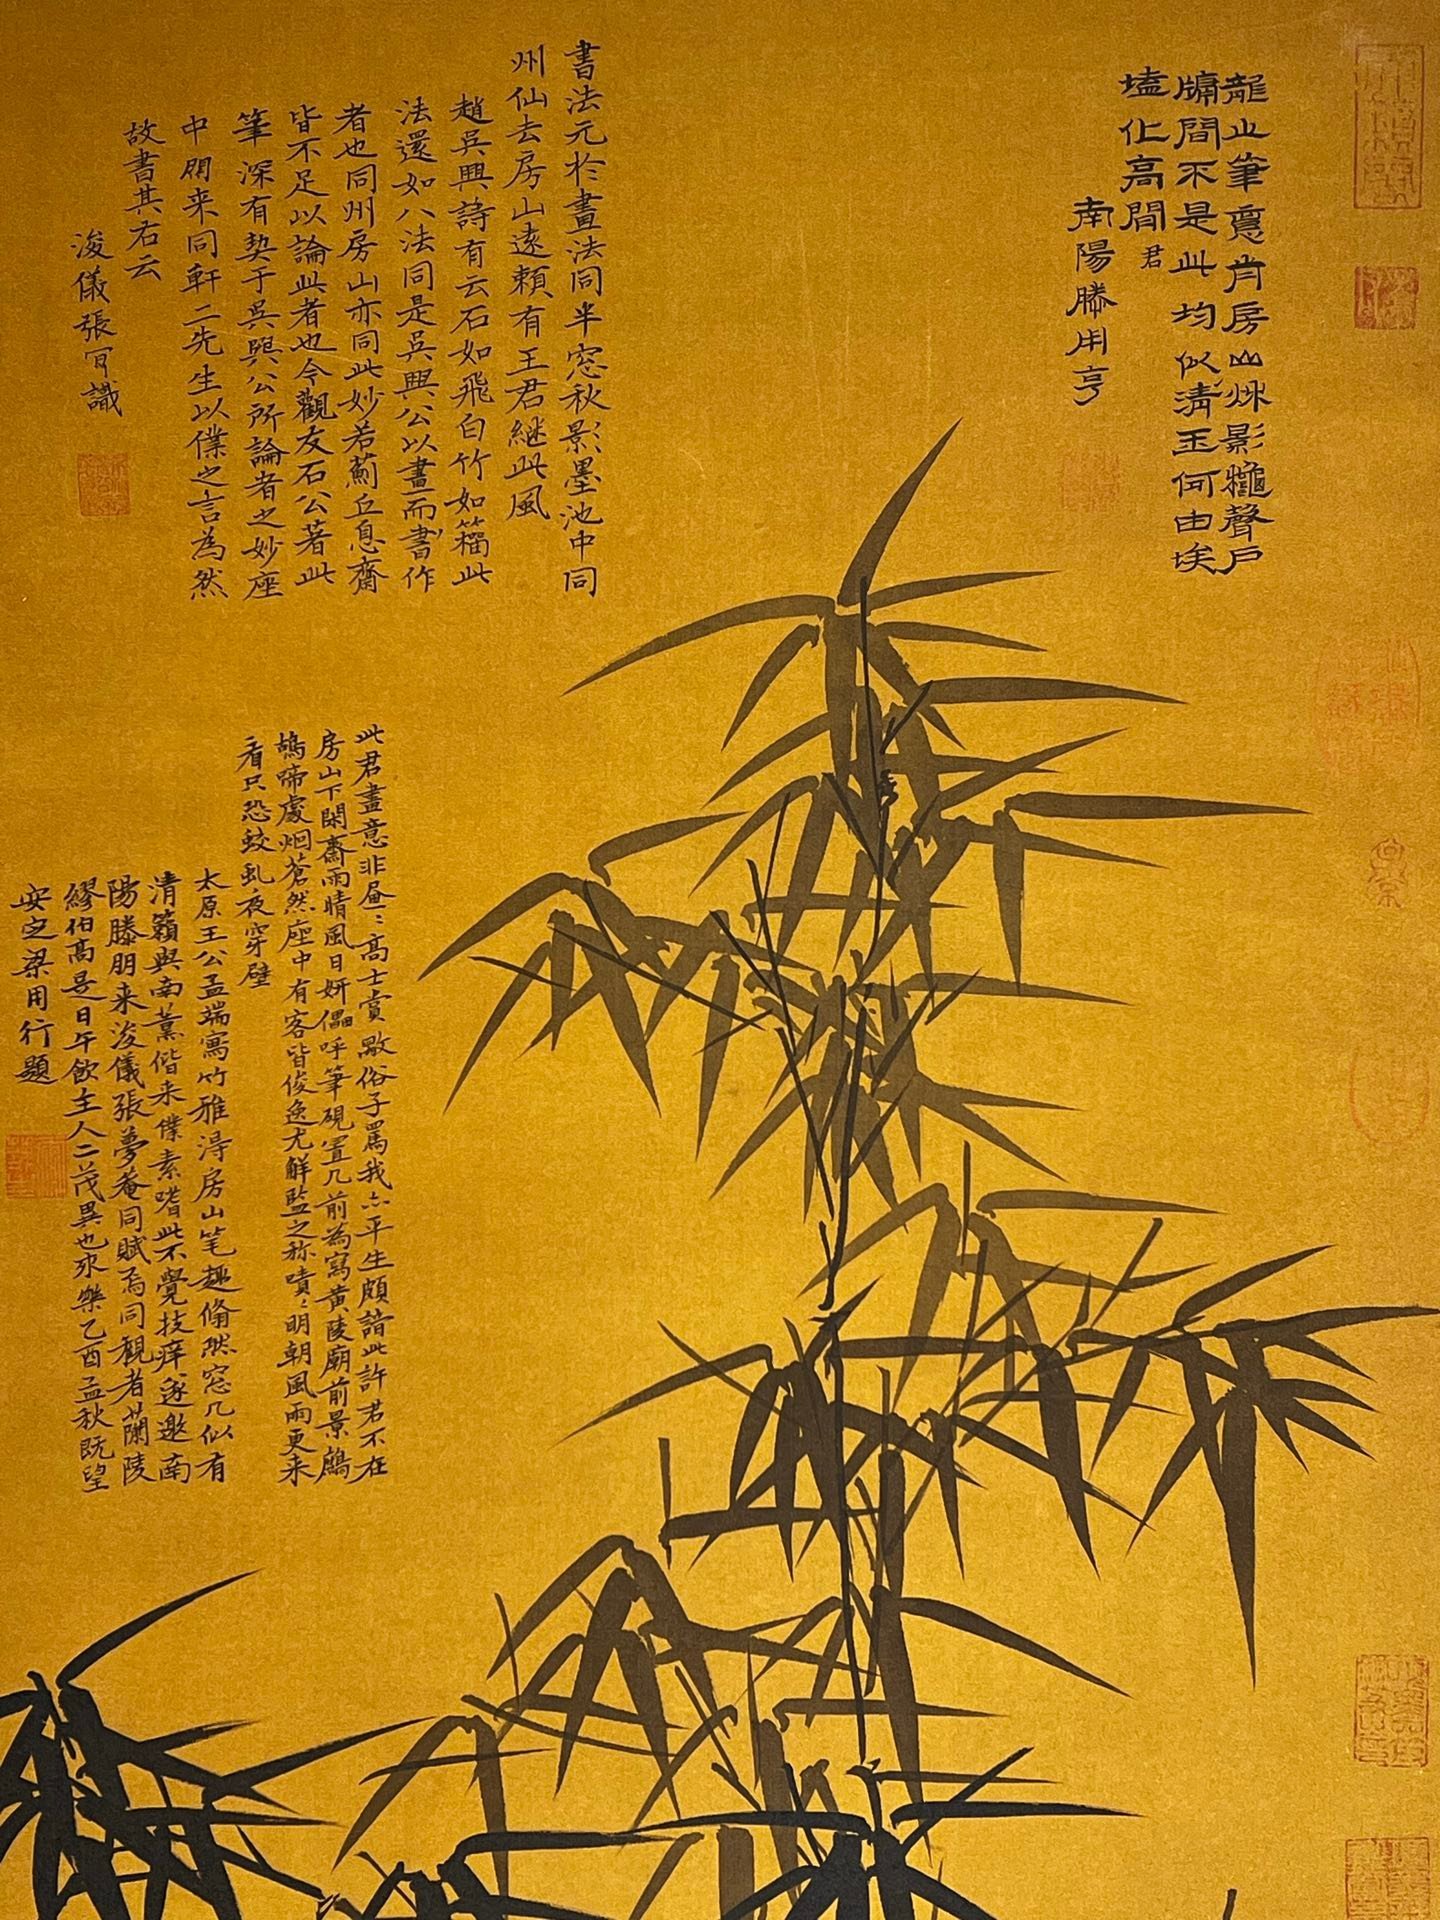 龍山筆意肖房山烁影龝聲戶
牗間不是此均似清玉何由埃
壒化高閒君
南陽滕用亨
書法元於畫法同半窓秋影墨池中同
州仙去房山遠賴有王君継此風
趙吳興詩有云石如飛白竹如籕此
法還如八法同是吳興公以畫而書作
者也同州房山亦同此妙若薊丘息齋
皆不足以論此者也今觀友石公著此
筆深有契于吳興公所論者之妙座
中朋来同軒二先生以僕之言為然
故書其右云
浚儀張㝉識
此君畫意非凮〻高士賞歎俗子罵我亦平生頗諳此許君不在
房山下閑齋雨晴風日妍儡呼筆硯置几前為寫黄陵廟前景鷓
鴣啼處烟蒼然座中有客皆俊逸尤解監之称嘖〻明朝風雨更来
看只恐蛟虬夜穿壁
太原王公孟端寫竹雅淂房山笔趣翛然窓几似有
清籟與南薰偕来僕素嗜此不覺技痒遂邀南
陽滕朋来浚儀張夢菴同賦焉同觀者蘭陵
繆伯高是日午飲主人二茂異也永樂乙酉孟秋既望
安定梁用行題